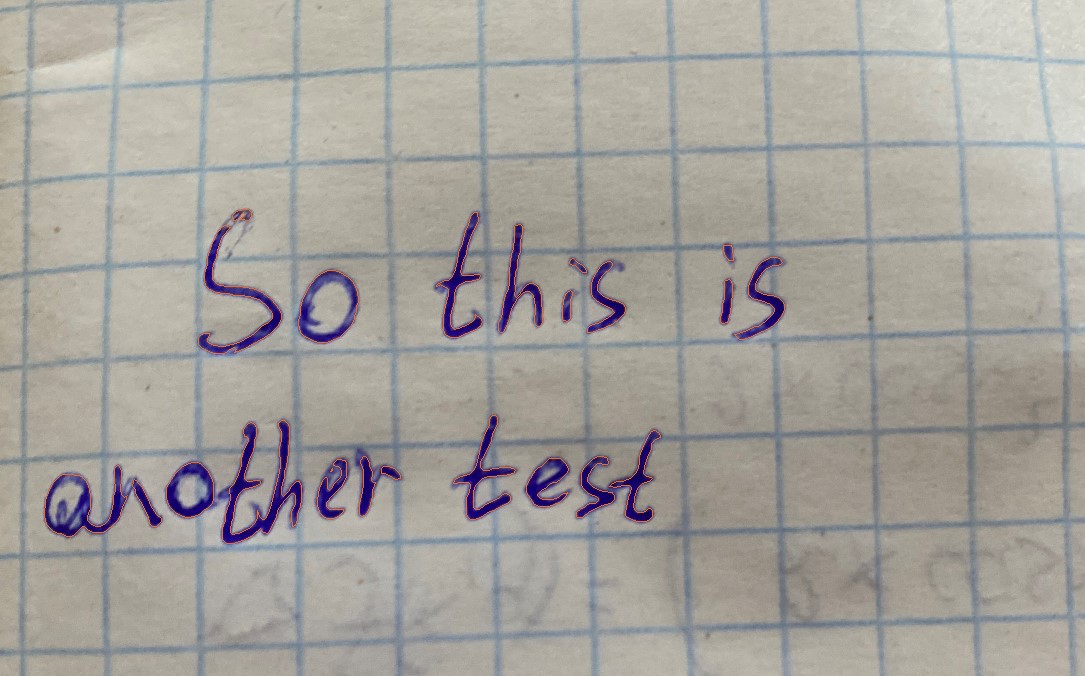 So this is
another test